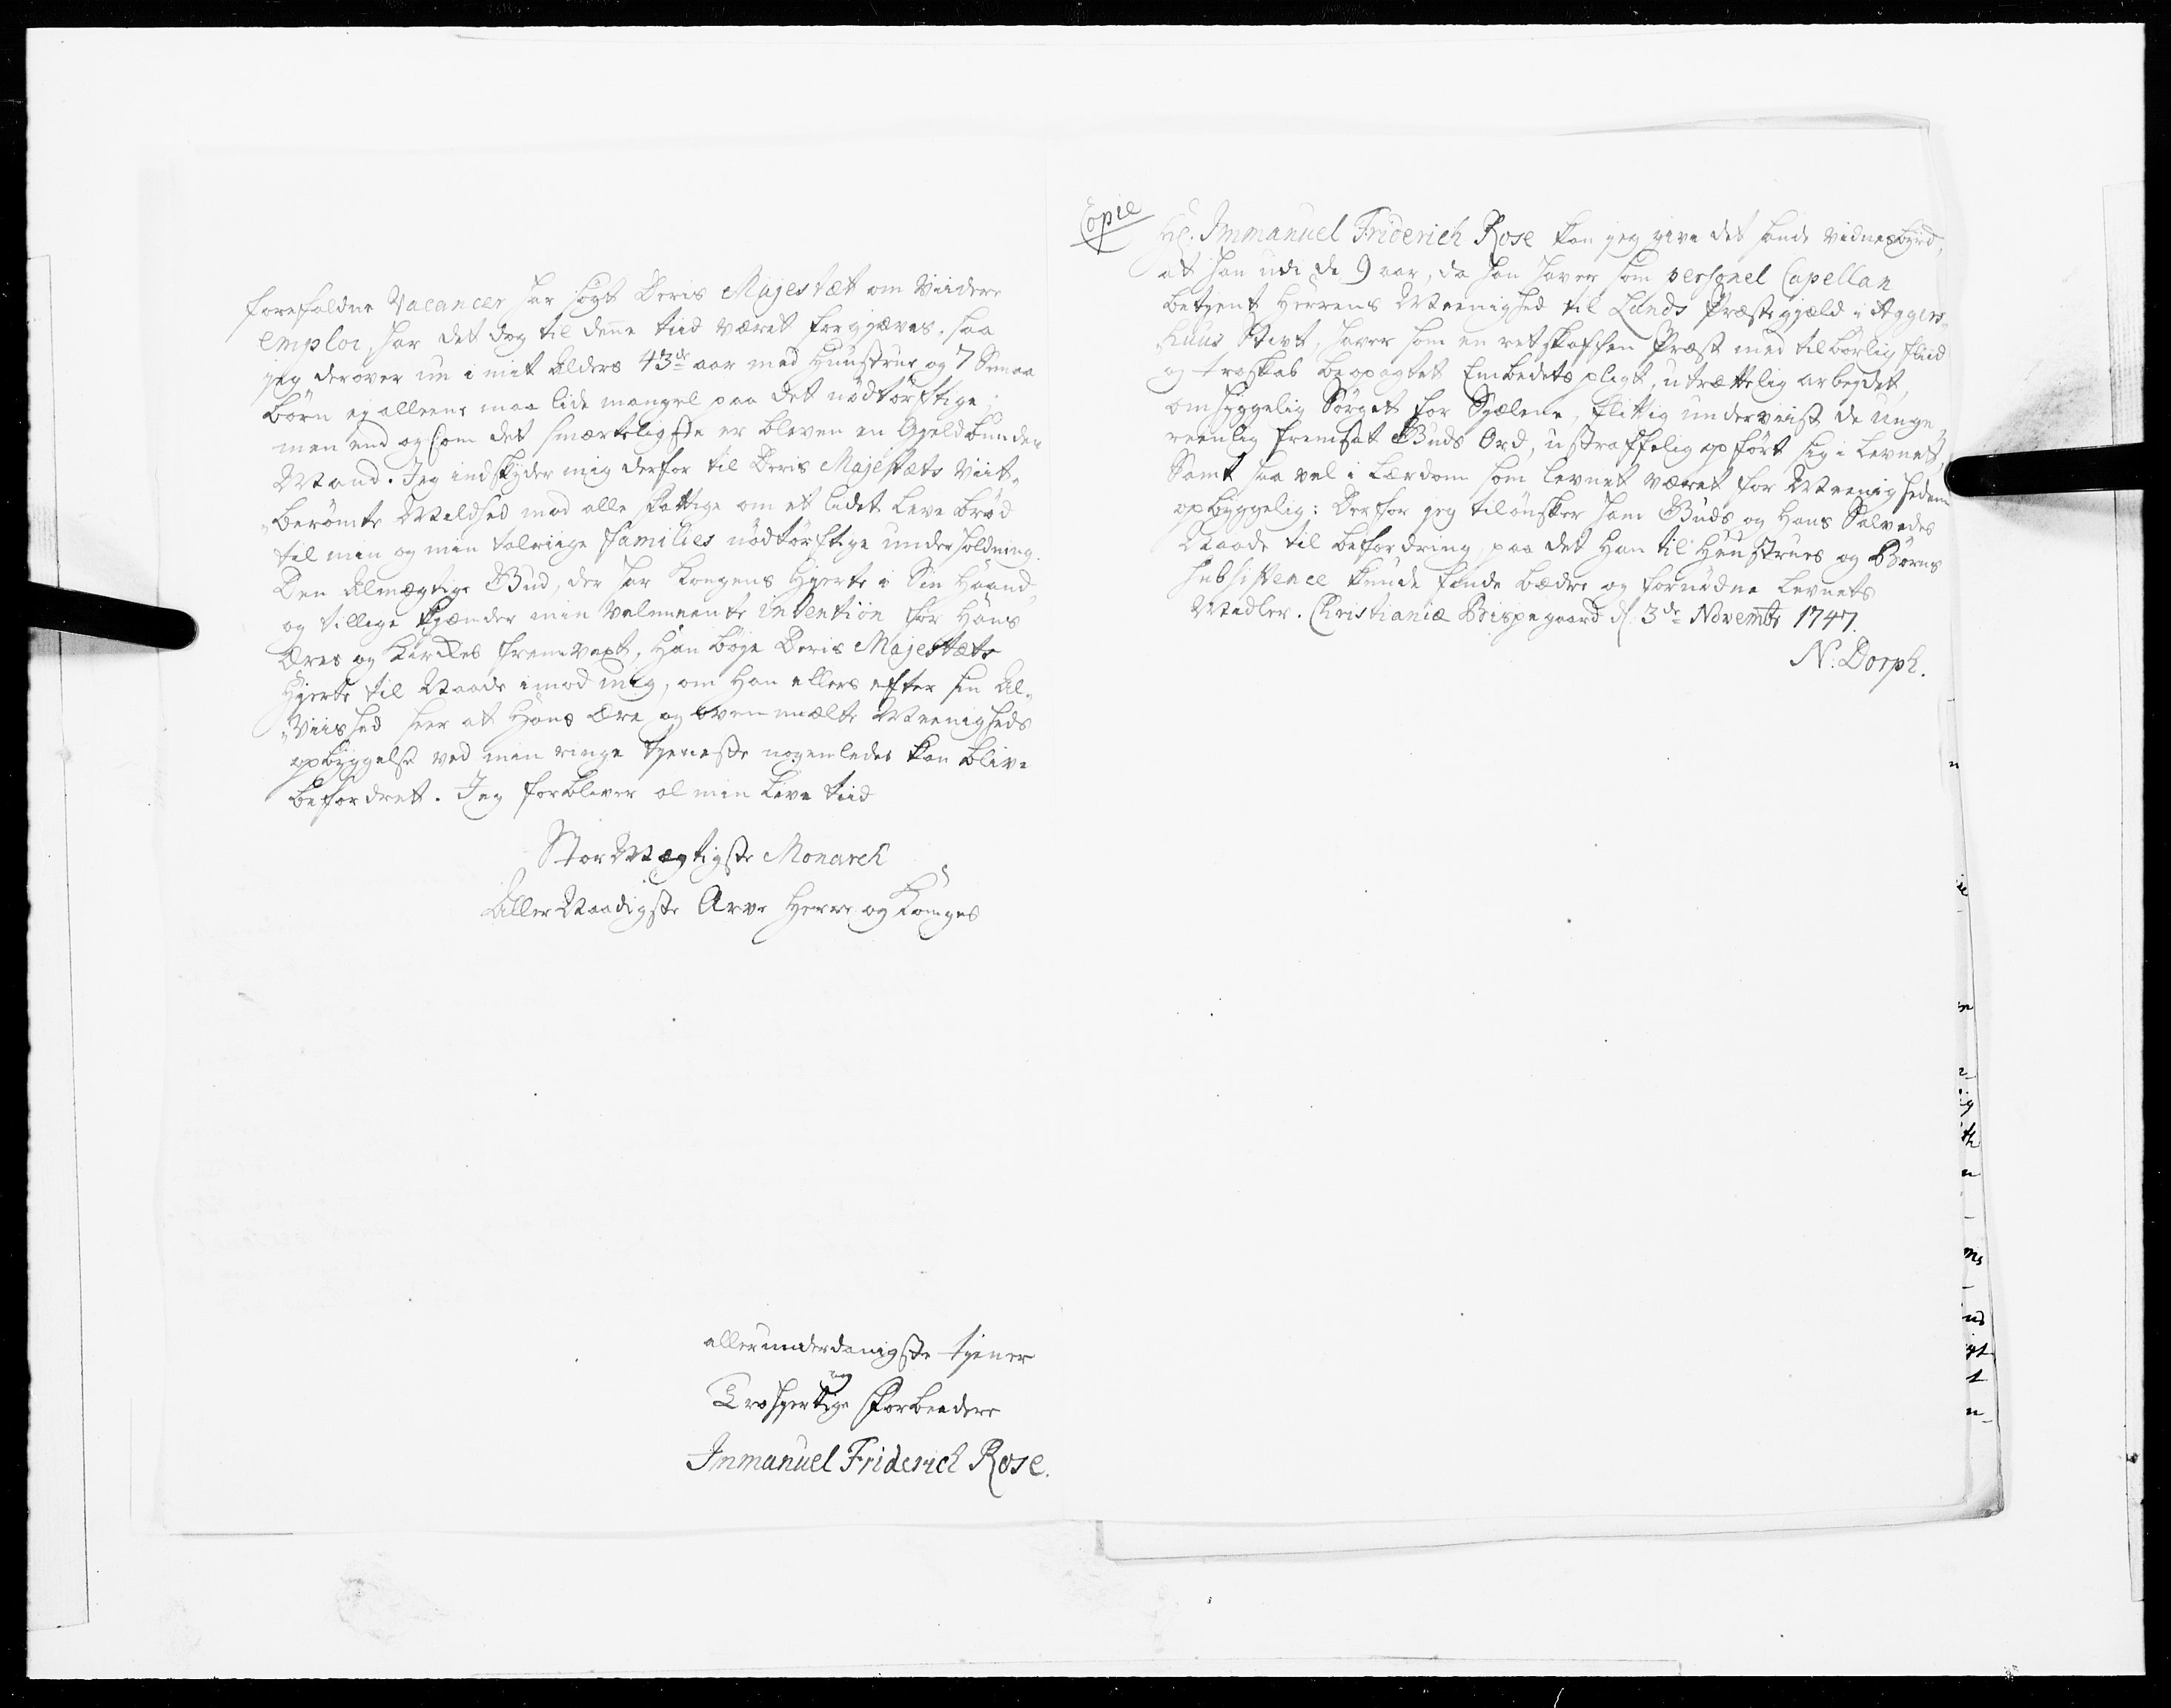 forefaldne Vacancer har søgt Deris Majestæt om Viidere
emploi, har det dog til denne tiid været forgjæves. saa
jeg derover nu i mit Alders 43de aar med Huustrue og 7 Smaa
børn ej alleene maa lide mangel paa det nødtørftige;
men end og som det smærteligste er bleven en Gjeldbunden
Mand. Jeg indskyder mig derfor til Deris Majestæts Viit-
berømte Mildhed mod alle fattige om et lidet Leve brød
til min og min talriige Families nødtørftige underholdning.
Den Almægtige Gud, der har Kongens Hjerte i Sin Haand,
og tillige kjænder min velmeente intention for Hans
Æres og Kirkes fremvext, Han bøye Deris Majestæts
Hjerte til Naade imod mig, om Han ellers efter sin Al-
Viished seer at Hans Ære og ovenmælte Meenigheds
opbyggelse ved min ringe tjeneste nogenledes kan blive
befordret. Jeg forbliver al min Leve tiid
Stor Mægtigste Monarch
Aller Naadigste Arve Herre og Konges
allerunderdanigste tjener
og
Troehjertige Forbeedere
Immanuel Friderich Rose.
Copie
Hr. Immanuel Friderich Rose kan jeg give det sande vidnesbyrd,
at han udi de 9 aar, da han haver som personel Capellan
betjent Herrens Meenighed til Lunds Præstegjæld i Aggers-
huus Stivt, haver som en retskaffen Præst med tilbørlig fliid
og troskab beopagtet Embedets pligt, utrættelig arbeydet,
omhyggelig Sørget for Sjælene, flittig underviist de unge,
reenlig fremsat Guds Ord, ustraffelig opført sig i Levnet,
Samt saa vel i Lærdom som levnet været for Meenigheden
opbyggelig: Derfor jeg tilønsker ham Guds og Hans Salvedes
Naade til befordring, paa det Han til Huustrues og Børns
subsistence kunde finde bædre og fornødne Levnets
Midler. Christianiæ Bispegaard d. 3de Novembr 1747.
N. Dorph.